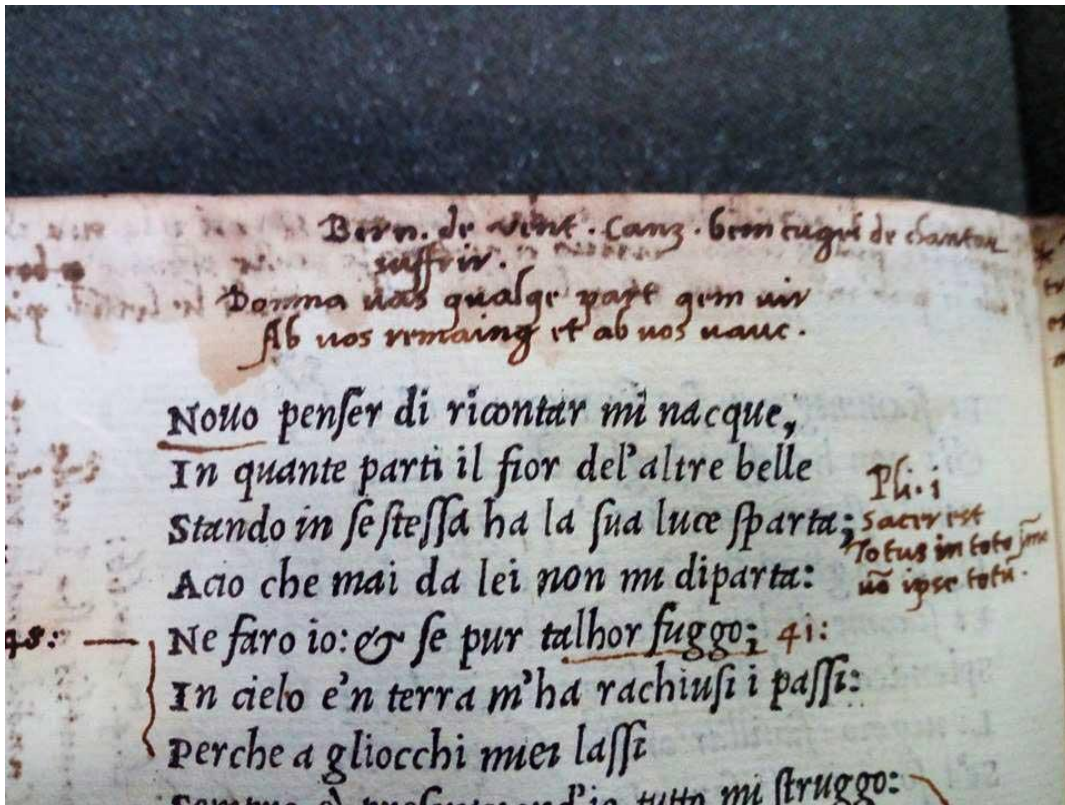 Bern. de vent. Canz. bem cugei de chantar
suffrir.
Domna vas qualqe part qem vir
Ab vos remaing et ab vos vauc.
Nouo penſer di ricontar mi nacque,
In quante parti il fior del'altre belle
Stando in ſe ſteſſa ha la ſua luce ſparta;
Acio che mai da lei non mi diparta:
Ne faro io: & ſe pur talhor fuggo; 41:
In cielo e'n terra m'ha rachiuſi i paſſi:
Perche a gliocchi miei laſſi
mi ſtruggo:
Pli. i
Sacer est
Totus in toto
ipse
48: